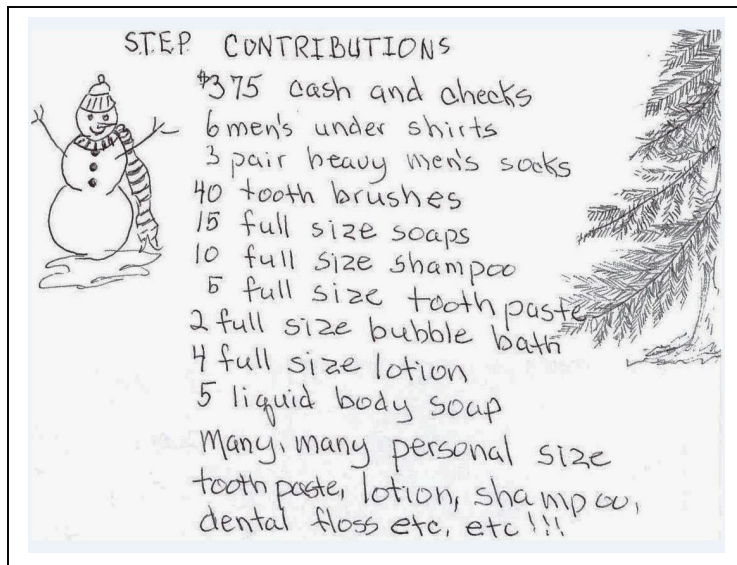 S.T.E.P. CONTRIBUTIONS
$375 cash and checks
6 men's under shirts
3 pair heavy men's socks
40 tooth brushes
15 full size soaps
10 full size shampoo
5 full size tooth paste
2 full size bubble bath
4 full size lotion
5 liquid body soap
Many, many personal size
tooth paste, lotion, shampoo,
dental floss etc, etc!!!